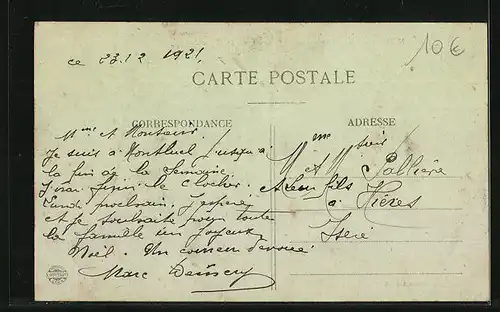 10€
ce 23.12 1921.
CARTE POSTALE
CORRESPONDANCE
ADRESSE
Mme et Monsieur.
Je suis à Montluel jusqu'à
la fin de la semaine.
J'irai finir le clocher
Lundi prochain, j'espère
et je souhaite pour toute
la famille un joyeux
Noël. Un 
Marc
Mme et Mr
Pallière
et leur fils
à Hières
Isère